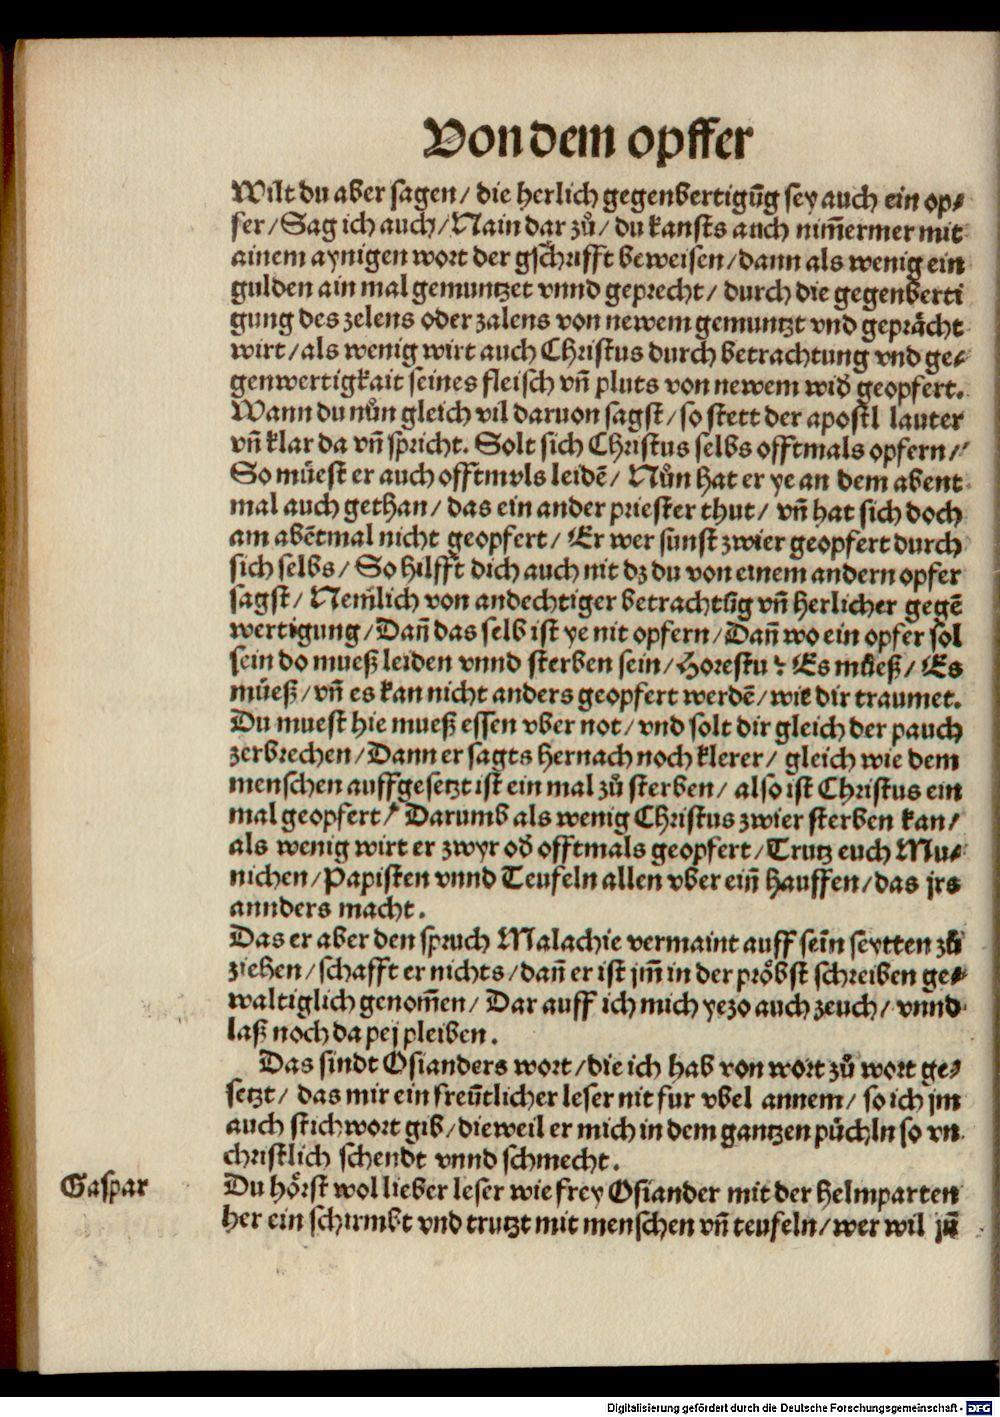 Von dem opffer
Wilt du aber sagen/ die herlich gegenbertigūg sey auch ein op⸗
fer/ Sag ich auch/ Nain dar zů/ du kansts auch nim̄ermer mit
ainem aynigen wort der gschrifft beweisen/ dann als wenig ein
gulden ain mal gemuntzet vnnd geprecht/ durch die gegenberti
gung des zelens oder zalens von newem gemuntzt vnd geprächt
wirt/ als wenig wirt auch Christus durch betrachtung vnd ge⸗
genwertigkait seines fleisch vn̄ pluts von newem wid̄ geopfert.
Wann du nůn gleich vil daruon sagst/ so stett der apostl lauter
vn̄ klar da vn̄ spricht. Solt sich Christus selbs offtmals opfern/
So müest er auch offtmvls leidē/ Nůn hat er ye an dem abent
mal auch gethan/ das ein ander priester thut/ vn̄ hat sich doch
am abētmal nicht geopfert/ Er wer sunst zwier geopfert durch
sich selbs/ So hilfft dich auch nit dz du von einem andern opfer
sagst/ Nem̄lich von andechtiger betrachtūg vn̄ herlicher gegē
wertigung/ Dan̄ das selb ist ye nit opfern/ Dan̄ wo ein opfer sol
sein do mueß leiden vnnd sterben sein/ Horestu? Es müeß/ Es
müeß/ vn̄ es kan nicht anders geopfert werdē/ wie dir traumet.
Du muest hie mueß essen vber not/ vnd solt dir gleich der pauch
zerbrechen/ Dann er sagts hernach noch klerer/ gleich wie dem
menschen auffgesetzt ist ein mal zů sterben/ also ist Christus ein
mal geopfert/ Darumb als wenig Christus zwier sterben kan/
als wenig wirt er zwyr od̄ offtmals geopfert/ Trutz euch Mu⸗
nichen/ Papisten vnnd Teufeln allen vber ein̄ hauffen/ das jrs
annders macht.
Das er aber den spruch Malachie vermaint auff sein seytten zů
ziehen/ schafft er nichts/ dan̄ er ist jm̄ in der pröbst schreiben ge⸗
waltiglich genom̄en/ Dar auff ich mich yezo auch zeuch/ vnnd
laß noch da pej pleiben.
Das sindt Osianders wort/ die ich hab von wort zů wort ge⸗
setzt/ das mir ein freütlicher leser nit fur vbel annem/ so ich jm
auch stichwort gib/ dieweil er mich in dem gantzen püchln so vn
christlich schendt vnnd schmecht.
Gaspar
Du hörst wol lieber leser wie frey Osiander mit der helmparten
her ein schirmbt vnd trutzt mit menschen vn̄ teufeln/ wer wil jn̄
Digitalisierung gefördert durch die Deutsche Forschungsgemeinschaft - DFG